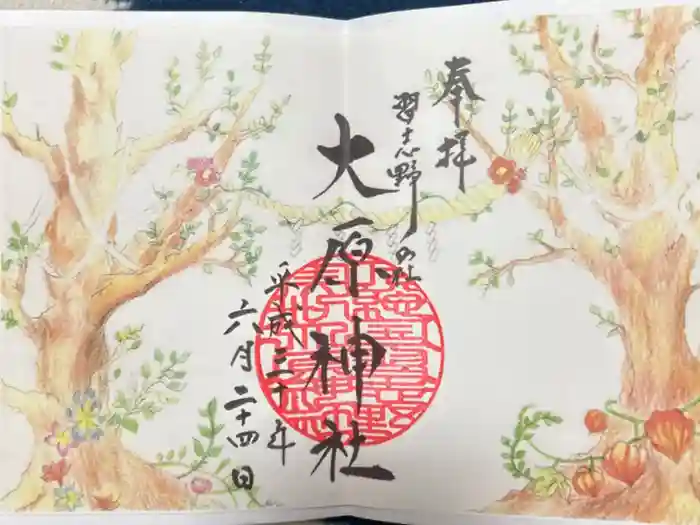 奉拝
習志野の社
大原神社
平成三十年
六月二十四日